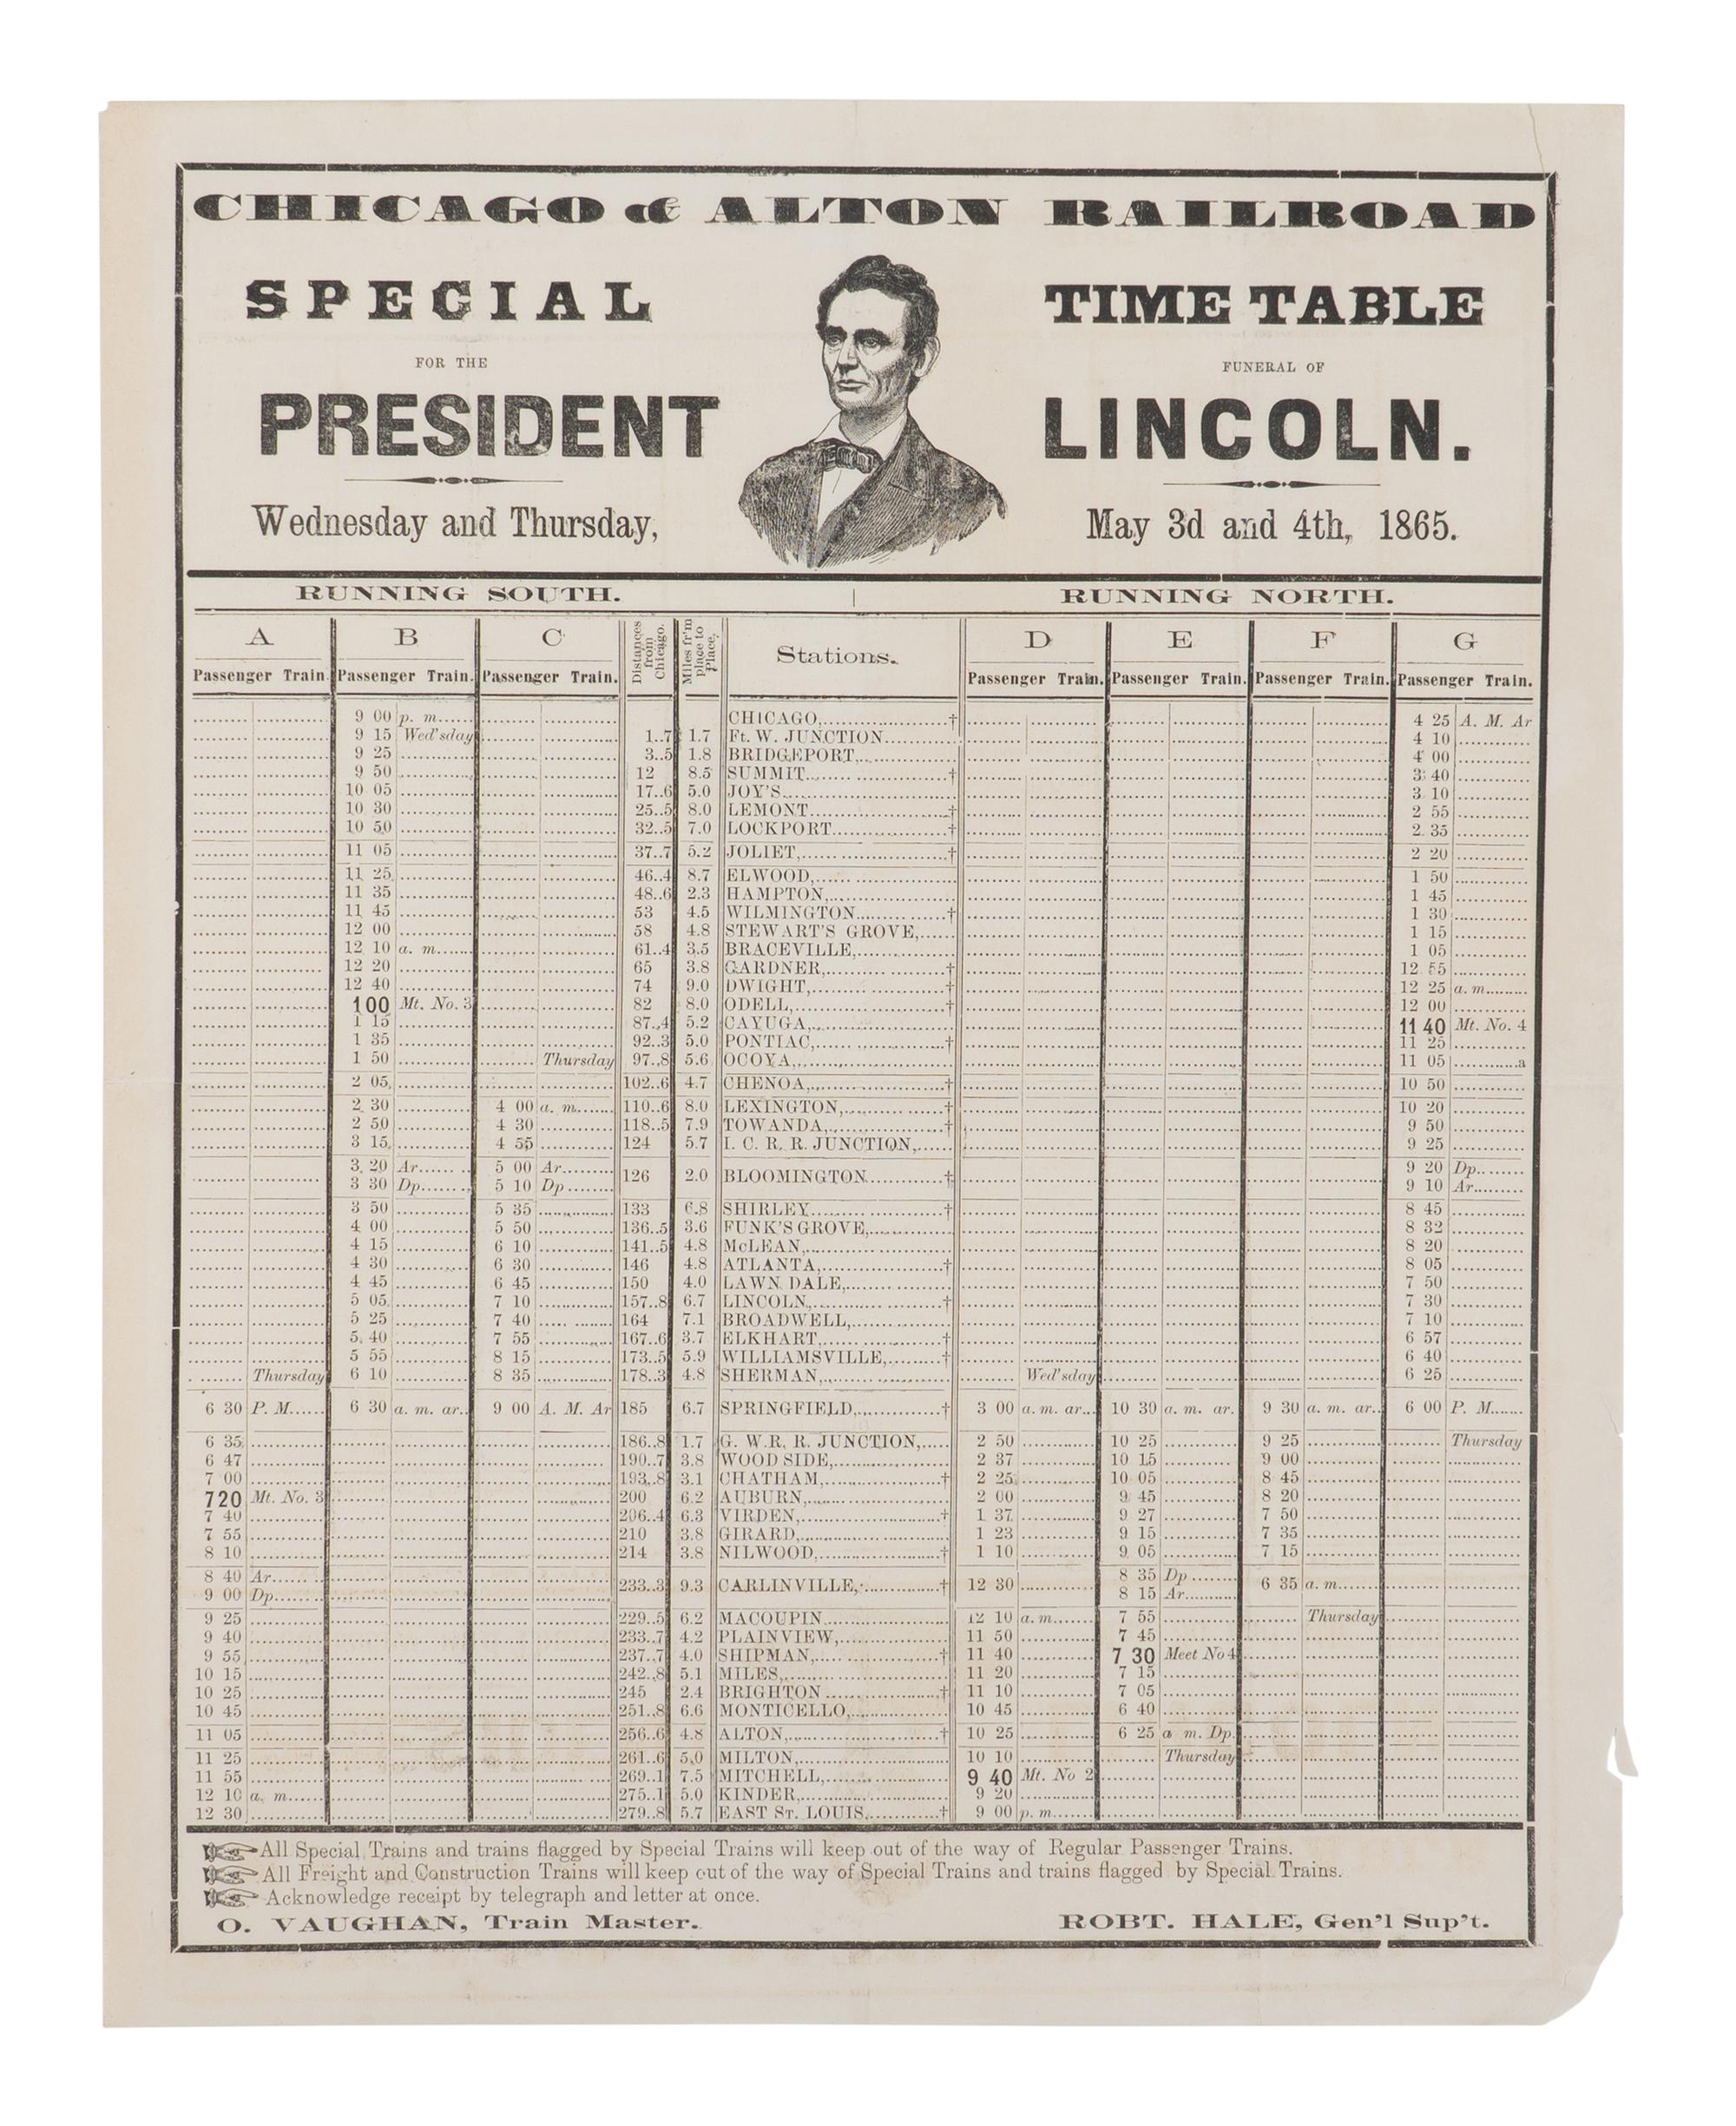 CHICAGO & ALTON RAILROAD
SPECIAL TIME TABLE
FOR THE FUNERAL OF
PRESIDENT LINCOLN.
Wednesday and Thursday, May 3d and 4th, 1865.
RUNNING SOUTH. RUNNING NORTH.
A B C Distances from Chicago. Miles fr'm place to Place. Stations. D E F G
Passenger Train. Passenger Train. Passenger Train. Passenger Train. Passenger Train. Passenger Train. Passenger Train.
9 00 p. m. CHICAGO, † 4 25 A. M. Ar
9 15 Wed'sday 1..7 1.7 Ft. W. JUNCTION 4 10
9 25 3..5 1.8 BRIDGEPORT, 4 00
9 50 12 8.5 SUMMIT † 3 40
10 05 17..6 5.0 JOY'S 3 10
10 30 25..5 8.0 LEMONT † 2 55
10 50 32..5 7.0 LOCKPORT † 2 35
11 05 37..7 5.2 JOLIET, † 2 20
11 25 46..4 8.7 ELWOOD, 1 50
11 35 48..6 2.3 HAMPTON, 1 45
11 45 53 4.5 WILMINGTON † 1 30
12 00 58 4.8 STEWART'S GROVE, 1 15
12 10 a. m. 61..4 3.5 BRACEVILLE, 1 05
12 20 65 3.8 GARDNER, † 12 55
12 40 74 9.0 DWIGHT, † 12 25 a. m.
1 00 Mt. No. 3 82 8.0 ODELL, † 12 00
1 15 87..4 5.2 CAYUGA, 11 40 Mt. No. 4
1 35 92..3 5.0 PONTIAC, † 11 25
1 50 Thursday 97..8 5.6 OCOYA, 11 05 a
2 05 102..6 4.7 CHENOA, † 10 50
2 30 4 00 a. m. 110..6 8.0 LEXINGTON, † 10 20
2 50 4 30 118..5 7.9 TOWANDA, † 9 50
3 15 4 55 124 5.7 I. C. R. R. JUNCTION, 9 25
3 20 Ar 5 00 Ar 126 2.0 BLOOMINGTON † 9 20 Dp
3 30 Dp 5 10 Dp 9 10 Ar
3 50 5 35 133 6.8 SHIRLEY † 8 45
4 00 5 50 136..5 3.6 FUNK'S GROVE, 8 32
4 15 6 10 141..5 4.8 McLEAN, 8 20
4 30 6 30 146 4.8 ATLANTA, † 8 05
4 45 6 45 150 4.0 LAWN DALE, 7 50
5 05 7 10 157..8 6.7 LINCOLN, † 7 30
5 25 7 40 164 7.1 BROADWELL, 7 10
5 40 7 55 167..6 3.7 ELKHART, † 6 57
5 55 8 15 173..5 5.9 WILLIAMSVILLE, † 6 40
Thursday 6 10 8 35 178..3 4.8 SHERMAN, Wed'sday 6 25
6 30 P. M. 6 30 a. m. ar. 9 00 A. M. Ar 185 6.7 SPRINGFIELD, † 3 00 a. m. ar. 10 30 a. m. ar. 9 30 a. m. ar. 6 00 P. M.
6 35 186..8 1.7 G. W. R. R. JUNCTION, 2 50 10 25 9 25 Thursday
6 47 190..7 3.8 WOOD SIDE, 2 37 10 15 9 00
7 00 193..8 3.1 CHATHAM, † 2 25 10 05 8 45
7 20 Mt. No. 3 200 6.2 AUBURN, 2 00 9 45 8 20
7 40 206..4 6.3 VIRDEN, † 1 37 9 27 7 50
7 55 210 3.8 GIRARD, 1 23 9 15 7 35
8 10 214 3.8 NILWOOD, † 1 10 9 05 7 15
8 40 Ar 233..3 9.3 CARLINVILLE, † 12 30 8 35 Dp 6 35 a. m.
9 00 Dp 8 15 Ar
9 25 229..5 6.2 MACOUPIN 12 10 a. m. 7 55 Thursday
9 40 233..7 4.2 PLAINVIEW, 11 50 7 45
9 55 237..7 4.0 SHIPMAN, † 11 40 7 30 Meet No 4
10 15 242..8 5.1 MILES, 11 20 7 15
10 25 245 2.4 BRIGHTON † 11 10 7 05
10 45 251..8 6.6 MONTICELLO, 10 45 6 40
11 05 256..6 4.8 ALTON, † 10 25 6 25 a m. Dp.
11 25 261..6 5.0 MILTON, 10 10 Thursday
11 55 269..1 7.5 MITCHELL, 9 40 Mt. No 2
12 10 a. m. 275..1 5.0 KINDER, 9 20
12 30 279..8 5.7 EAST ST. LOUIS, † 9 00 p. m.
All Special Trains and trains flagged by Special Trains will keep out of the way of Regular Passenger Trains.
All Freight and Construction Trains will keep out of the way of Special Trains and trains flagged by Special Trains.
Acknowledge receipt by telegraph and letter at once.
O. VAUGHAN, Train Master. ROBT. HALE, Gen'l Sup't.